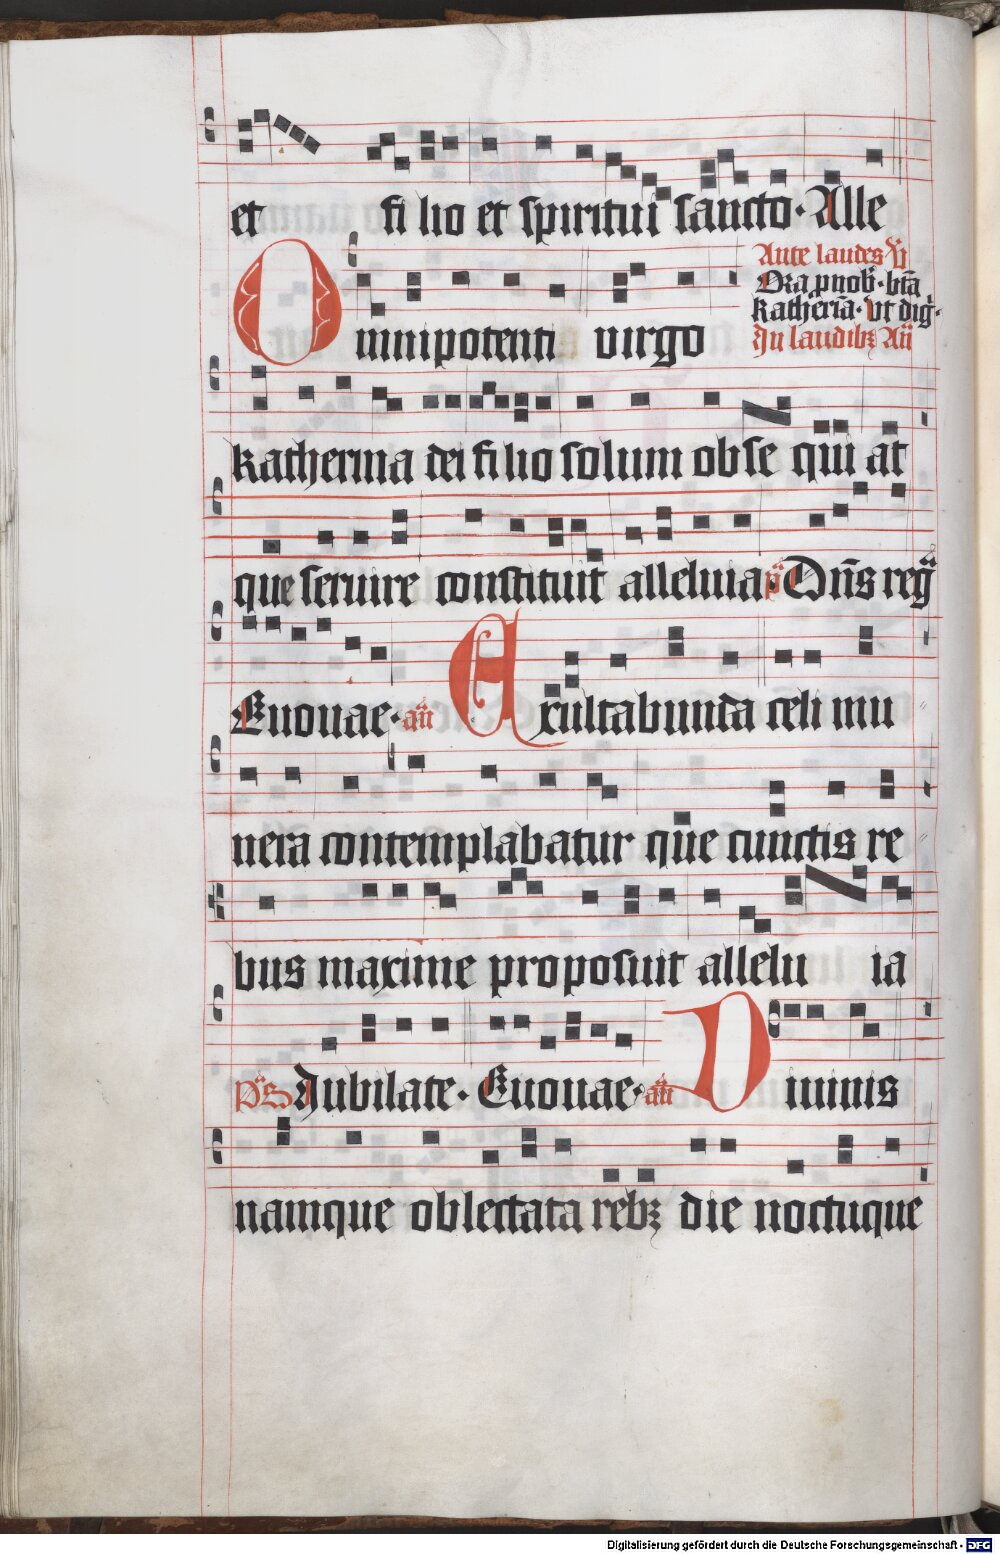 et filio et spiritui sancto. Alle
Ante laudes v̄
Ora ꝓ nob̄. btā
Omnipotenti virgo
katherīa. Vt diḡ.
In laudibꝫ Añ
katherina dei filio solum obsequii at
que seruire constituit alleluia. ps̄ Dn̄s reḡ
Euouae. añ Exultabunda celi mu
nera contemplabatur que cunctis re
bus maxime proposuit alleluia
Ps̄ Jubilate. Euouae. añ Diuinis
namque oblectata rebꝫ die noctuque
Digitalisierung gefördert durch die Deutsche Forschungsgemeinschaft - DFG